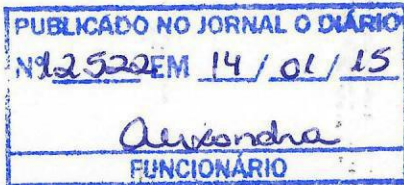 PUBLICADO NO JORNAL O DIÁRIO
Nº12522EM 14/01/15
Alexandra
FUNCIONÁRIO